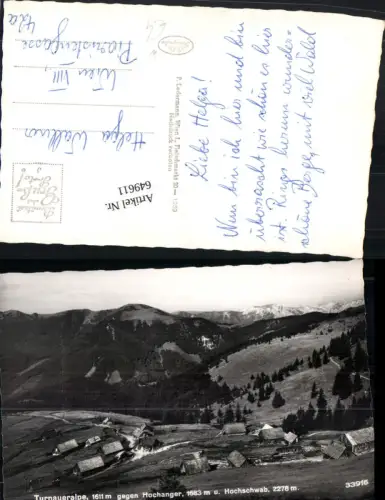 Liebe Helga!
Nun bin ich hier und bin
überrascht wie schön es hier
ist. Rings herum wunder-
schöne Berge, mit viel Wald
P. Ledermann, Wien I., Fleischmarkt
1950
Artikel Nr.
649611
Helga Wallner
Wien VIII,
Piaristengasse
Turnaueralpe, 1611 m gegen Hochanger, 1683 m u. Hochschwab, 2278 m.
33916